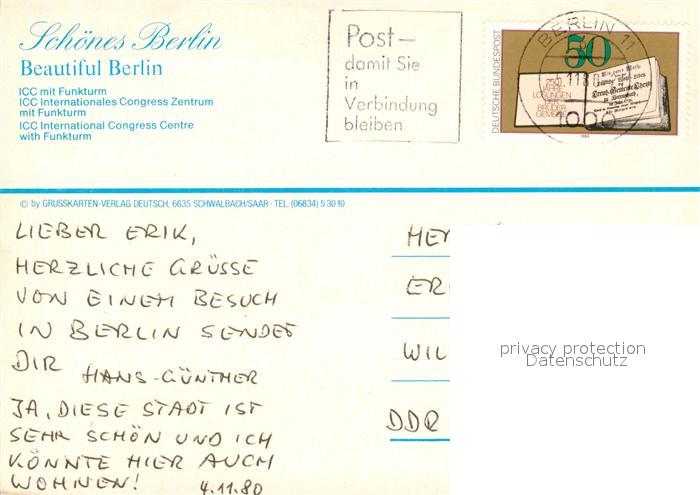 Schönes Berlin
Beautiful Berlin
ICC mit Funkturm
ICC Internationales Congress Zentrum
mit Funkturm
ICC International Congress Centre
with Funkturm
Post –
damit Sie
in
Verbindung
bleiben
BERLIN 11
1000
DEUTSCHE BUNDESPOST
50
250
JAHRE
LOSUNGEN
DER
BRÜDER
GEMEINE
1980
© by GRUSSKARTEN-VERLAG DEUTSCH, 6635 SCHWALBACH/SAAR · TEL. (06834) 5 30 10
LIEBER ERIK,
HERZLICHE GRÜSSE
VON EINEM BESUCH
IN BERLIN SENDET
DIR
HANS-GÜNTHER
JA, DIESE STADT IST
SEHR SCHÖN UND ICH
KÖNNTE HIER AUCH
WOHNEN! 4.11.80
ERI
WIL
DDR
privacy protection
Datenschutz